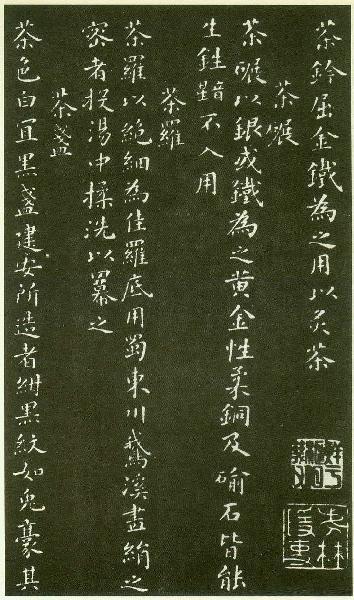 茶鈐屈金鐵為之用以炙茶
茶碾
茶碾以銀或鐵為之黃金性柔銅及喻石皆能
生鉎不入用
茶羅
茶羅以絕細為佳羅底用蜀東川鵝溪畫絹之
密者投湯中揉洗以羃之
茶盞
茶色白宜黑盞建安所造者紺黑紋如兔豪其